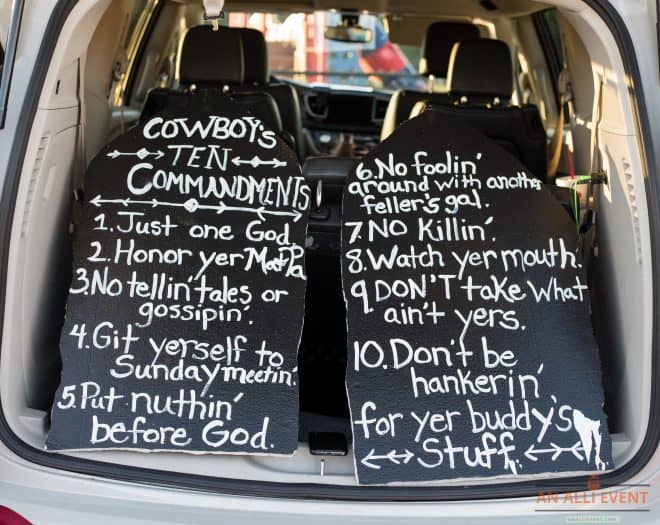 COWBOY'S
TEN
COMMANDMENTS
1. Just one God.
2. Honor yer Ma & Pa
3. No tellin' tales or
gossipin'.
4. Git yerself to
Sunday meetin'.
5. Put nuthin'
before God.
6. No foolin'
around with another
feller's gal.
7. NO Killin'.
8. Watch yer mouth.
9. DON'T take what
ain't yers.
10. Don't be
hankerin'
for yer buddy's
Stuff.
AN ALLI EVENT
ANALLIEVENT.COM